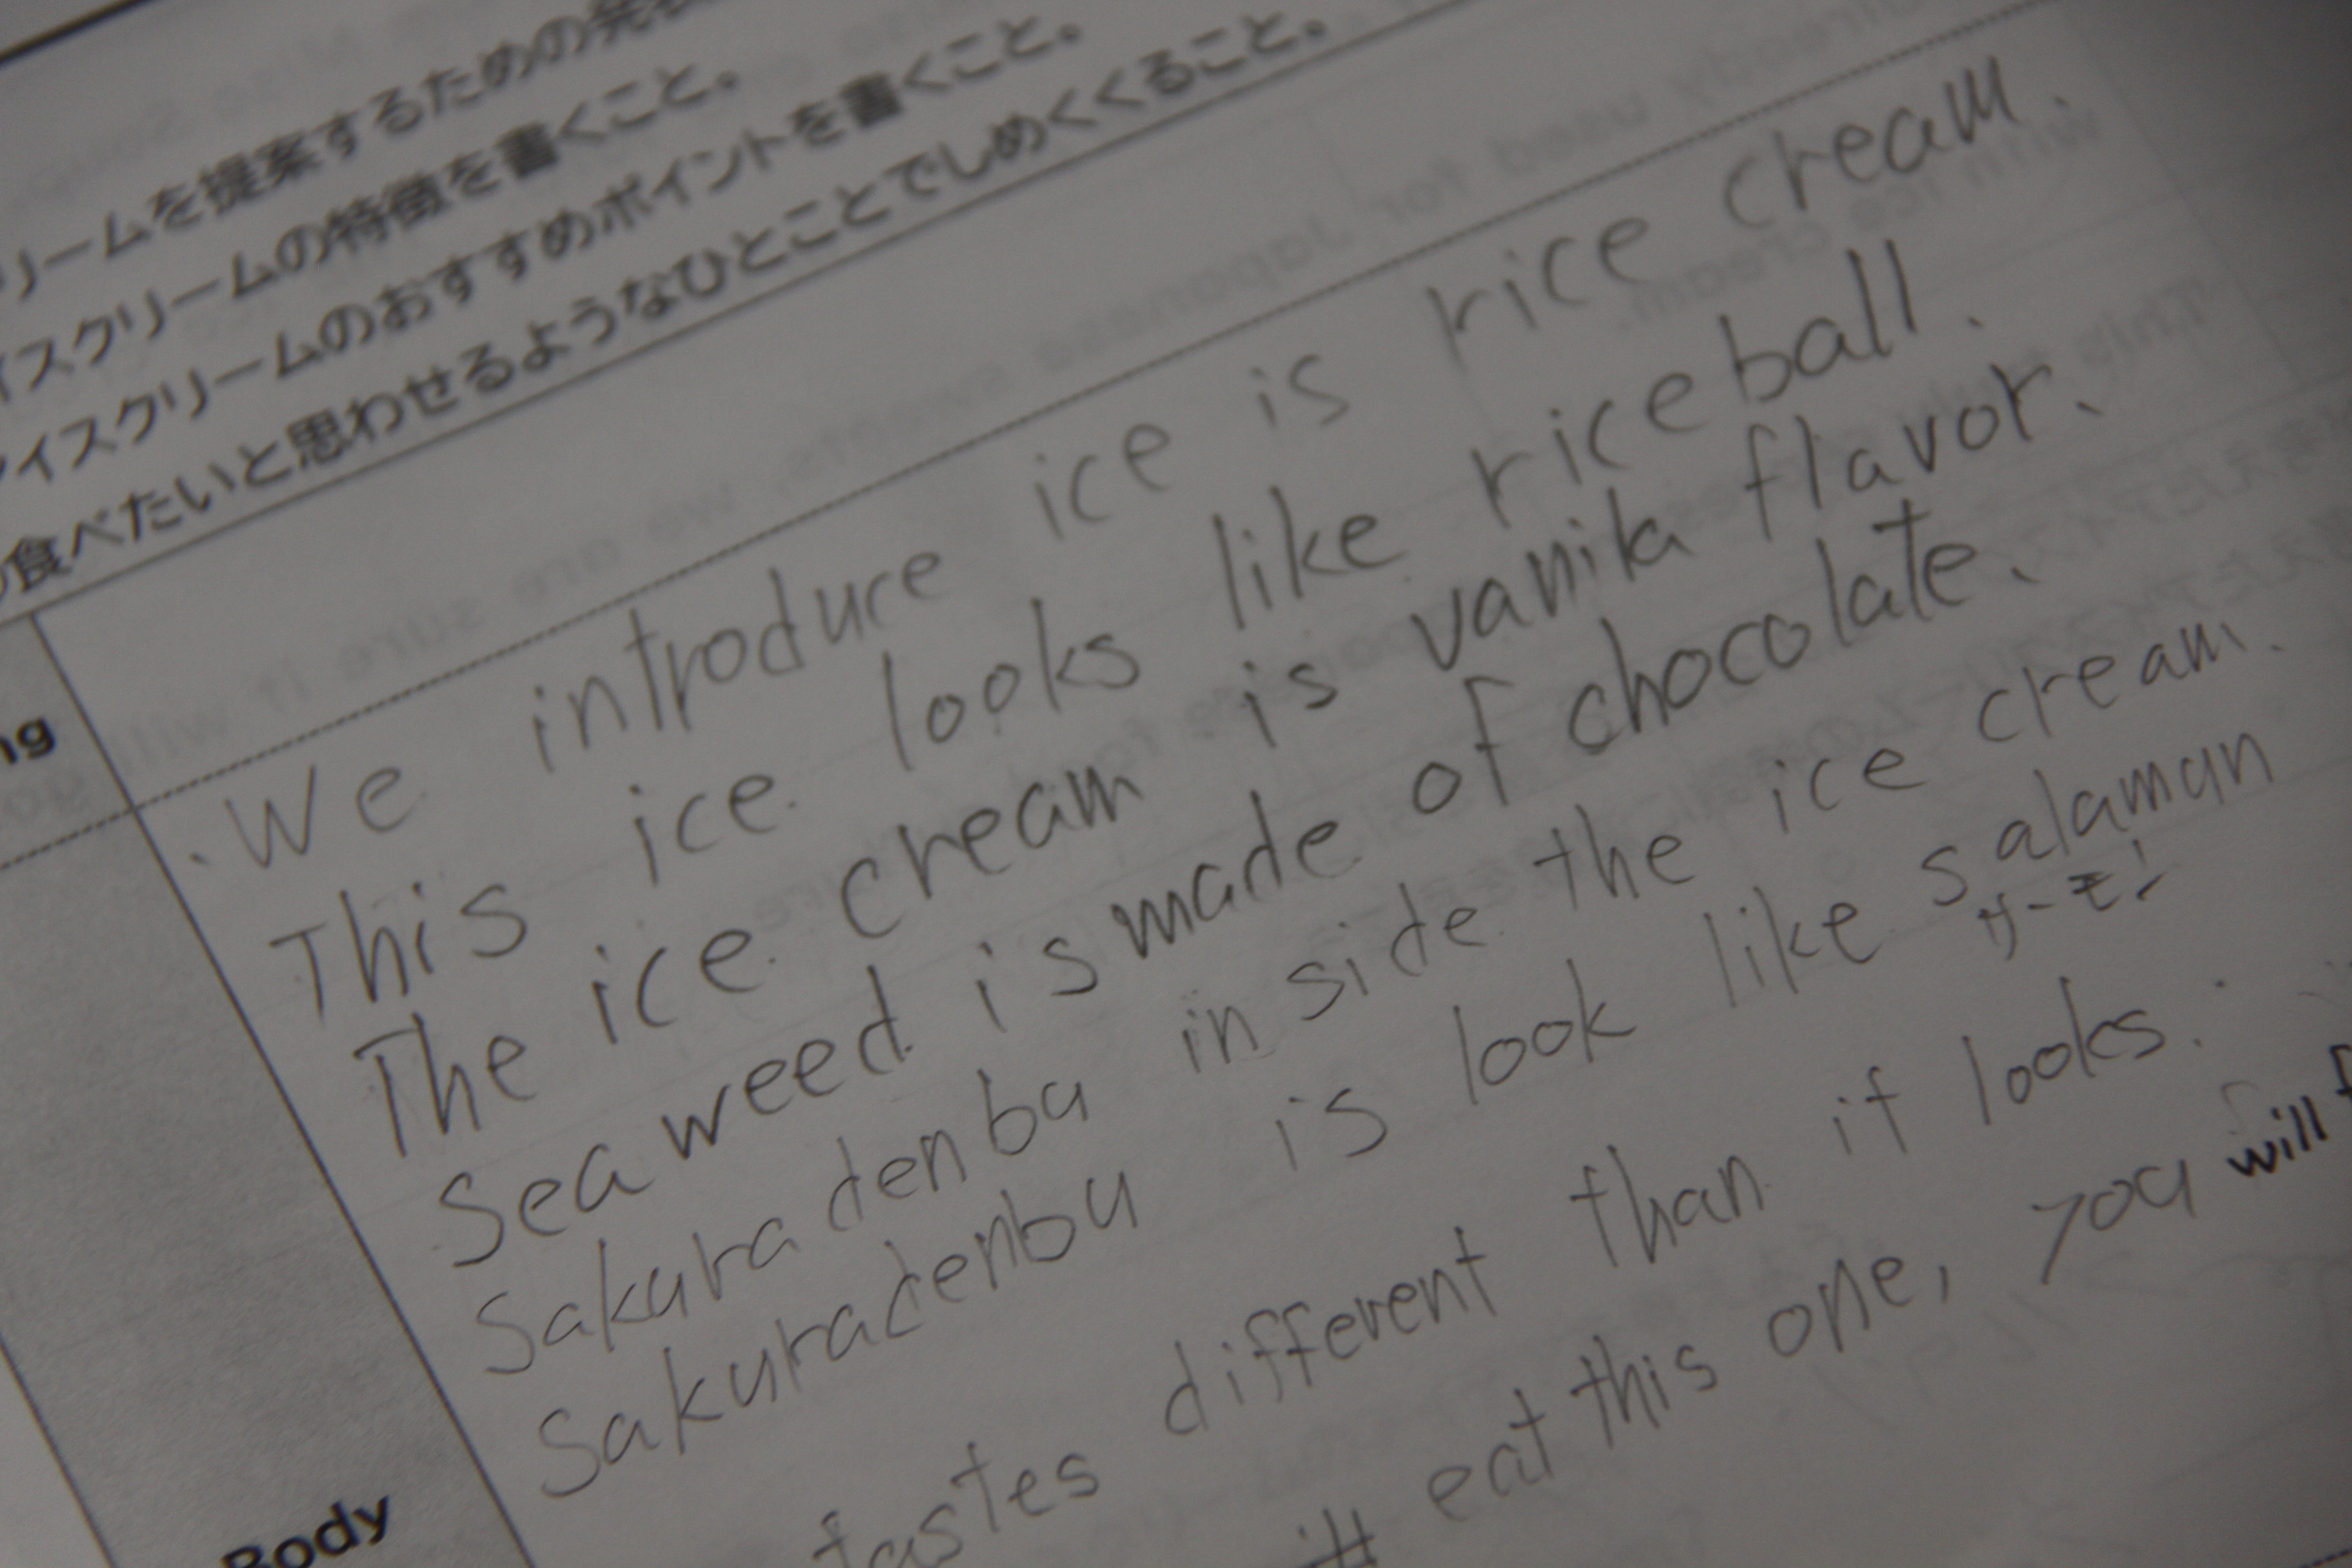 リームを提案するための発表
イスクリームの特徴を書くこと。
アイスクリームのおすすめポイントを書くこと。
食べたいと思わせるようなひとことでしめくくること。
ng
We introduce ice is rice cream.
This ice looks like rice ball.
The ice cream is vanila flavor.
Sea weed is made of chocolate.
Sakura denbu in side the ice cream.
Sakuradenbu is look like salamun
サーモン
tastes different than it looks.
eat this one, you will
Body